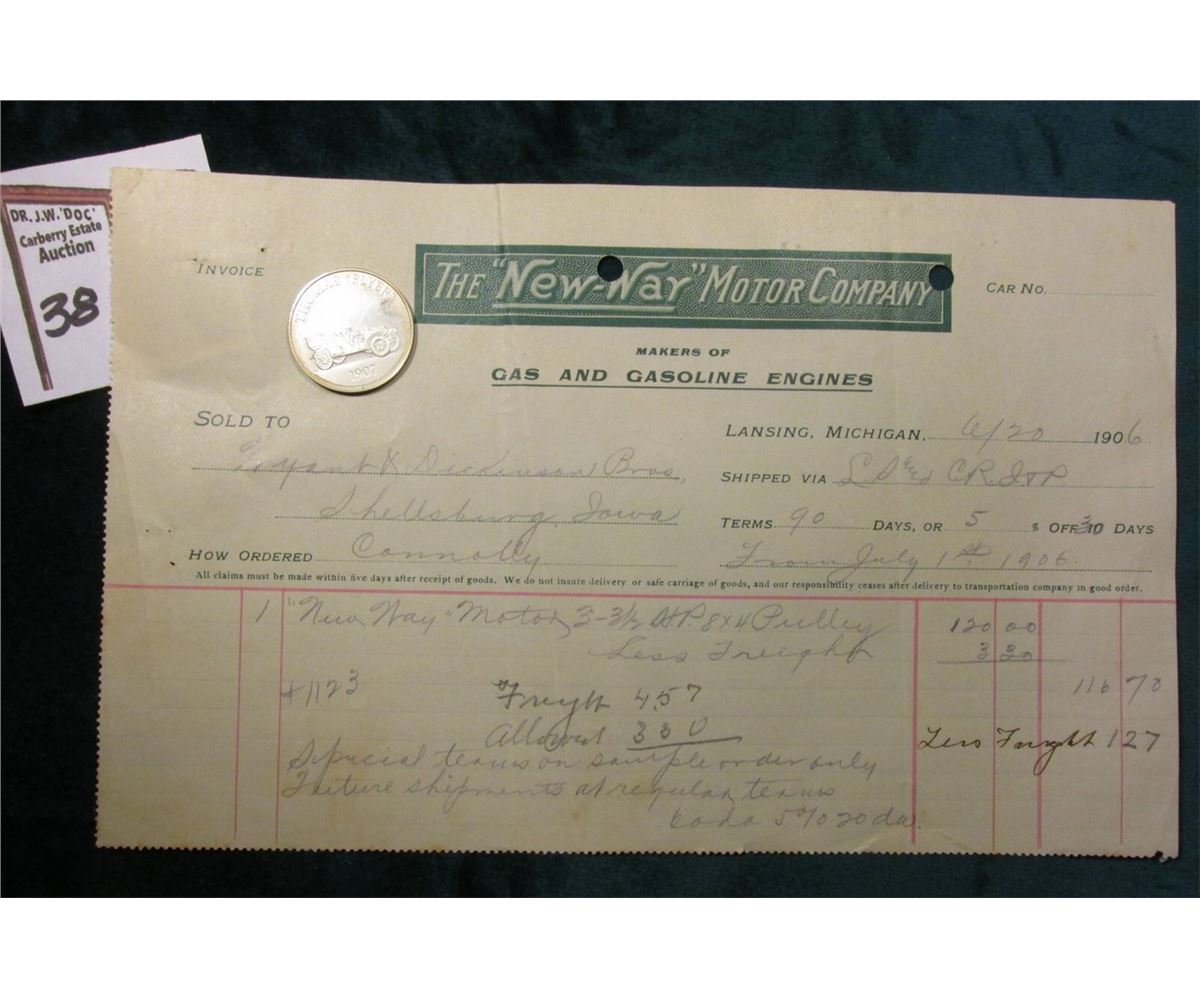 DR. J.W. 'DOC'
Carberry Estate
Auction
38
INVOICE
THE "NEW-WAY" MOTOR COMPANY
CAR NO.
MAKERS OF
GAS AND GASOLINE ENGINES
THOMAS "FLYER"
1907
SOLD TO
LANSING, MICHIGAN, 6/20 1906
& Dickinson Bros,
SHIPPED VIA L S C R. I & P.
Shellsburg, Iowa
TERMS 90 DAYS, OR 5 % OFF 30 DAYS
HOW ORDERED Connolly
From July 1st 1906
All claims must be made within five days after receipt of goods. We do not insure delivery or safe carriage of goods, and our responsibility ceases after delivery to transportation company in good order.
1 "New Way" Motor, 3-3½ H.P. 8x4 Pulley 120 00
Less Freight 3 30
#1123 Freight 4.57 116 70
Allowed 3 30 Less Freight 1 27
Special terms on sample order only
Future shipments at regular terms
60 da 5% 20 da.